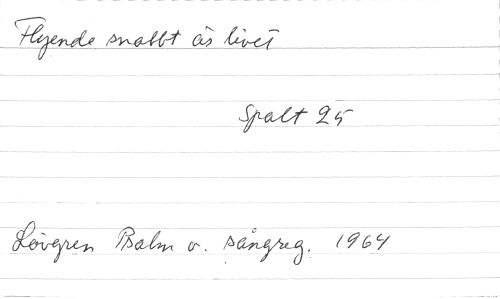 Flyende snabbt äs livet
Spalt 25
Lövgren Psalm o. sångreg. 1964